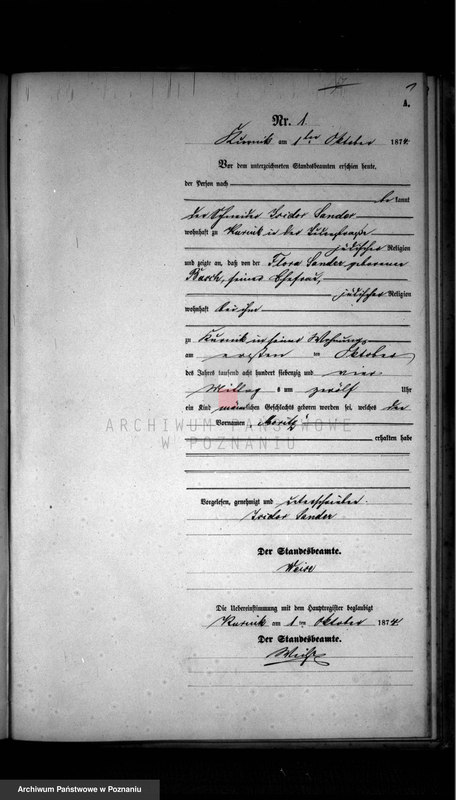 A.
Nr. 1.
Kurnik am 1ten Oktober 1874.
Vor dem unterzeichneten Standesbeamten erschien heute,
der Person nach
be kannt
der Schneider Isidor Sander
wohnhaft zu Kurnik in der
jüdischer Religion
und zeigte an, daß von der Flora Sander geborenen
Basch, seiner Ehefrau,
jüdischer Religion
wohnhaft bei ihm
zu Kurnik in seiner Wohnung
am ersten ten Oktober
des Jahres tausend acht hundert siebenzig und vier
Mittag s um zwölf Uhr
ein Kind männlichen Geschlechts geboren worden sei, welches den
Vornamen Moritz
erhalten habe
ARCHIWUM PAŃSTWOWE
W POZNANIU
Vorgelesen, genehmigt und unterschrieben.
Isidor Sander
Der Standesbeamte.
Weise
Die Uebereinstimmung mit dem Hauptregister beglaubigt
Kurnik am 1ten Oktober 1874.
Der Standesbeamte.
Weise
Archiwum Państwowe w Poznaniu